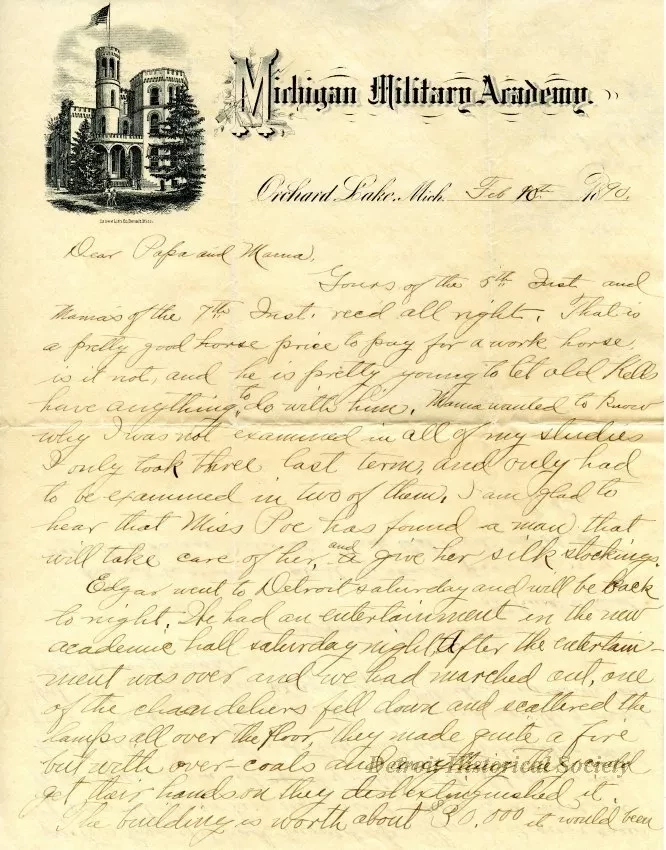 Michigan Military Academy.
Orchard Lake, Mich. Feb 10th 1890.
Dear Papa and Mama,
Yours of the 5th Inst and
Mama's of the 7th Inst. rec'd all right. That is
a pretty good horse price to pay for a work horse
is it not, and he is pretty young to let old Kells
have anything to do with him. Mama wanted to know
why I was not examined in all of my studies
I only took three last term, and only had
to be examined in two of them. I am glad to
hear that Miss Poe has found a man that
will take care of her, and give her silk stockings.
Edgar went to Detroit saturday and will be back
to night. We had an entertainment in the new
academic hall saturday night, After the entertain-
ment was over and we had marched out, one
of the chandeliers fell down and scattered the
lamps all over the floor, they made quite a fire
but with over-coats and anything they could
Detroit Historical Society
get their hands on they extinguished it.
The building is worth about $30,000 it would been